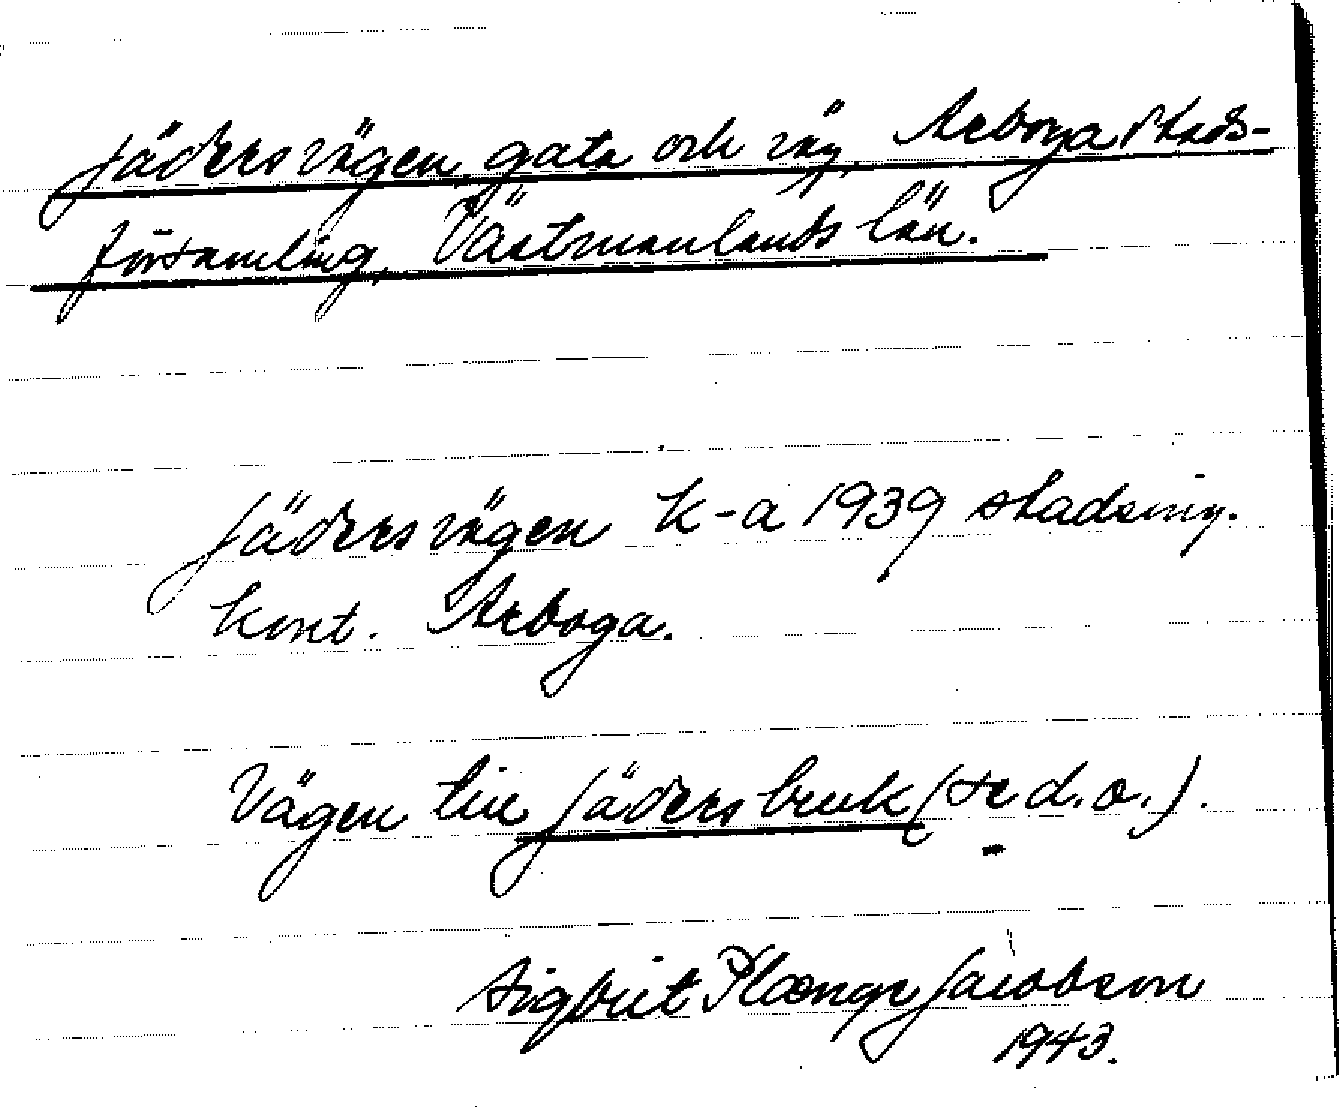 Jädersvägen, gata och väg, Arboga stads-
församling, Västmanlands län.
Jädersvägen k-a 1939 stadsing.
kont. Arboga.
Vägen till Jäders bruk (se d.o.).
Sigbrit Plænge Jacobson
1943.